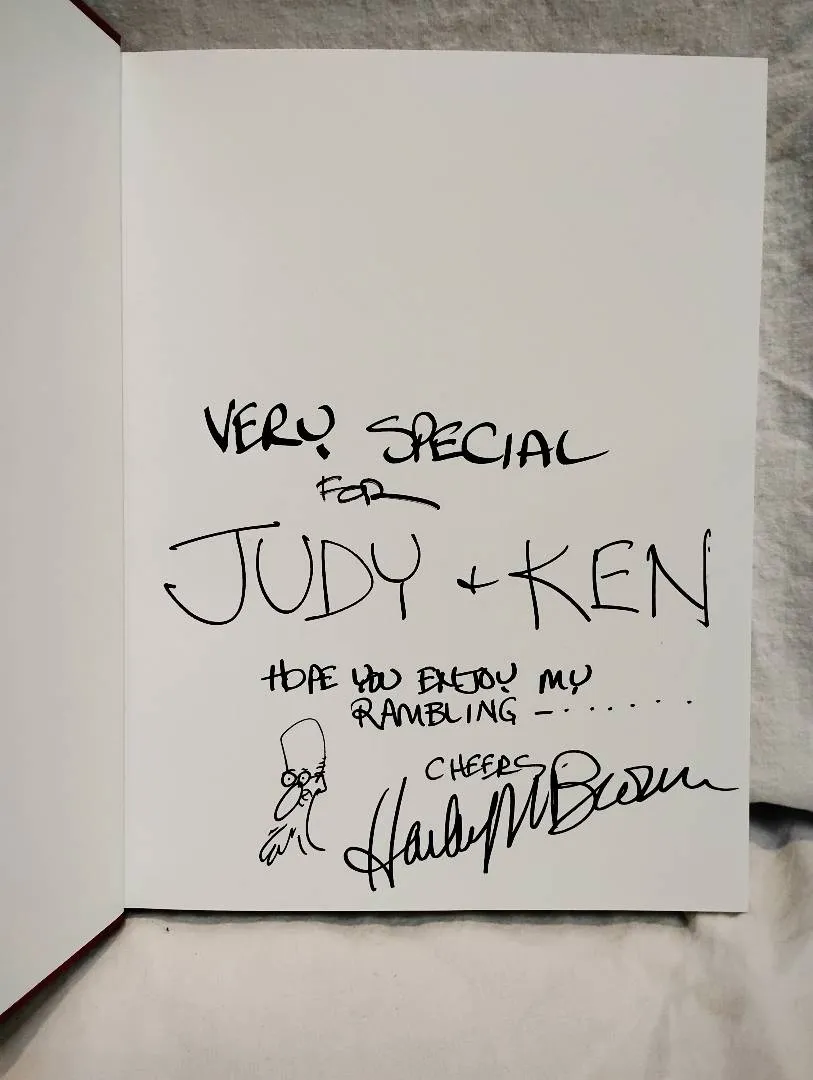 VERY SPECIAL
FOR
JUDY + KEN
HOPE YOU ENJOY MY
RAMBLING - . . . . . . .
CHEERS
Harley M Brown